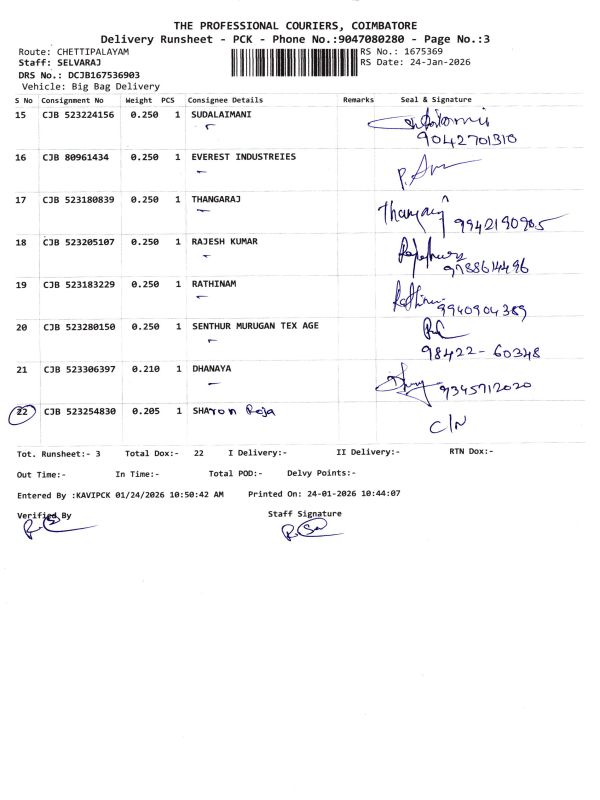 THE PROFESSIONAL COURIERS, COIMBATORE
Delivery Runsheet - PCK - Phone No.:9047080280 - Page No.:3
Route: CHETTIPALAYAM RS No.: 1675369
Staff: SELVARAJ RS Date: 24-Jan-2026
DRS No.: DCJB167536903
Vehicle: Big Bag Delivery
S No Consignment No Weight PCS Consignee Details Remarks Seal & Signature
15 CJB 523224156 0.250 1 SUDALAIMANI
9042701310
16 CJB 80961434 0.250 1 EVEREST INDUSTREIES
17 CJB 523180839 0.250 1 THANGARAJ Thangaraj
18 CJB 523205107 0.250 1 RAJESH KUMAR
19 CJB 523183229 0.250 1 RATHINAM
9940904389
20 CJB 523280150 0.250 1 SENTHUR MURUGAN TEX AGE
98422-60348
21 CJB 523306397 0.210 1 DHANAYA 9345712020
22 CJB 523254830 0.205 1 SHAron Roja C/N
Tot. Runsheet:- 3 Total Dox:- 22 I Delivery:- II Delivery:- RTN Dox:-
Out Time:- In Time:- Total POD:- Delvy Points:-
Entered By :KAVIPCK 01/24/2026 10:50:42 AM Printed On: 24-01-2026 10:44:07
Verified By Staff Signature